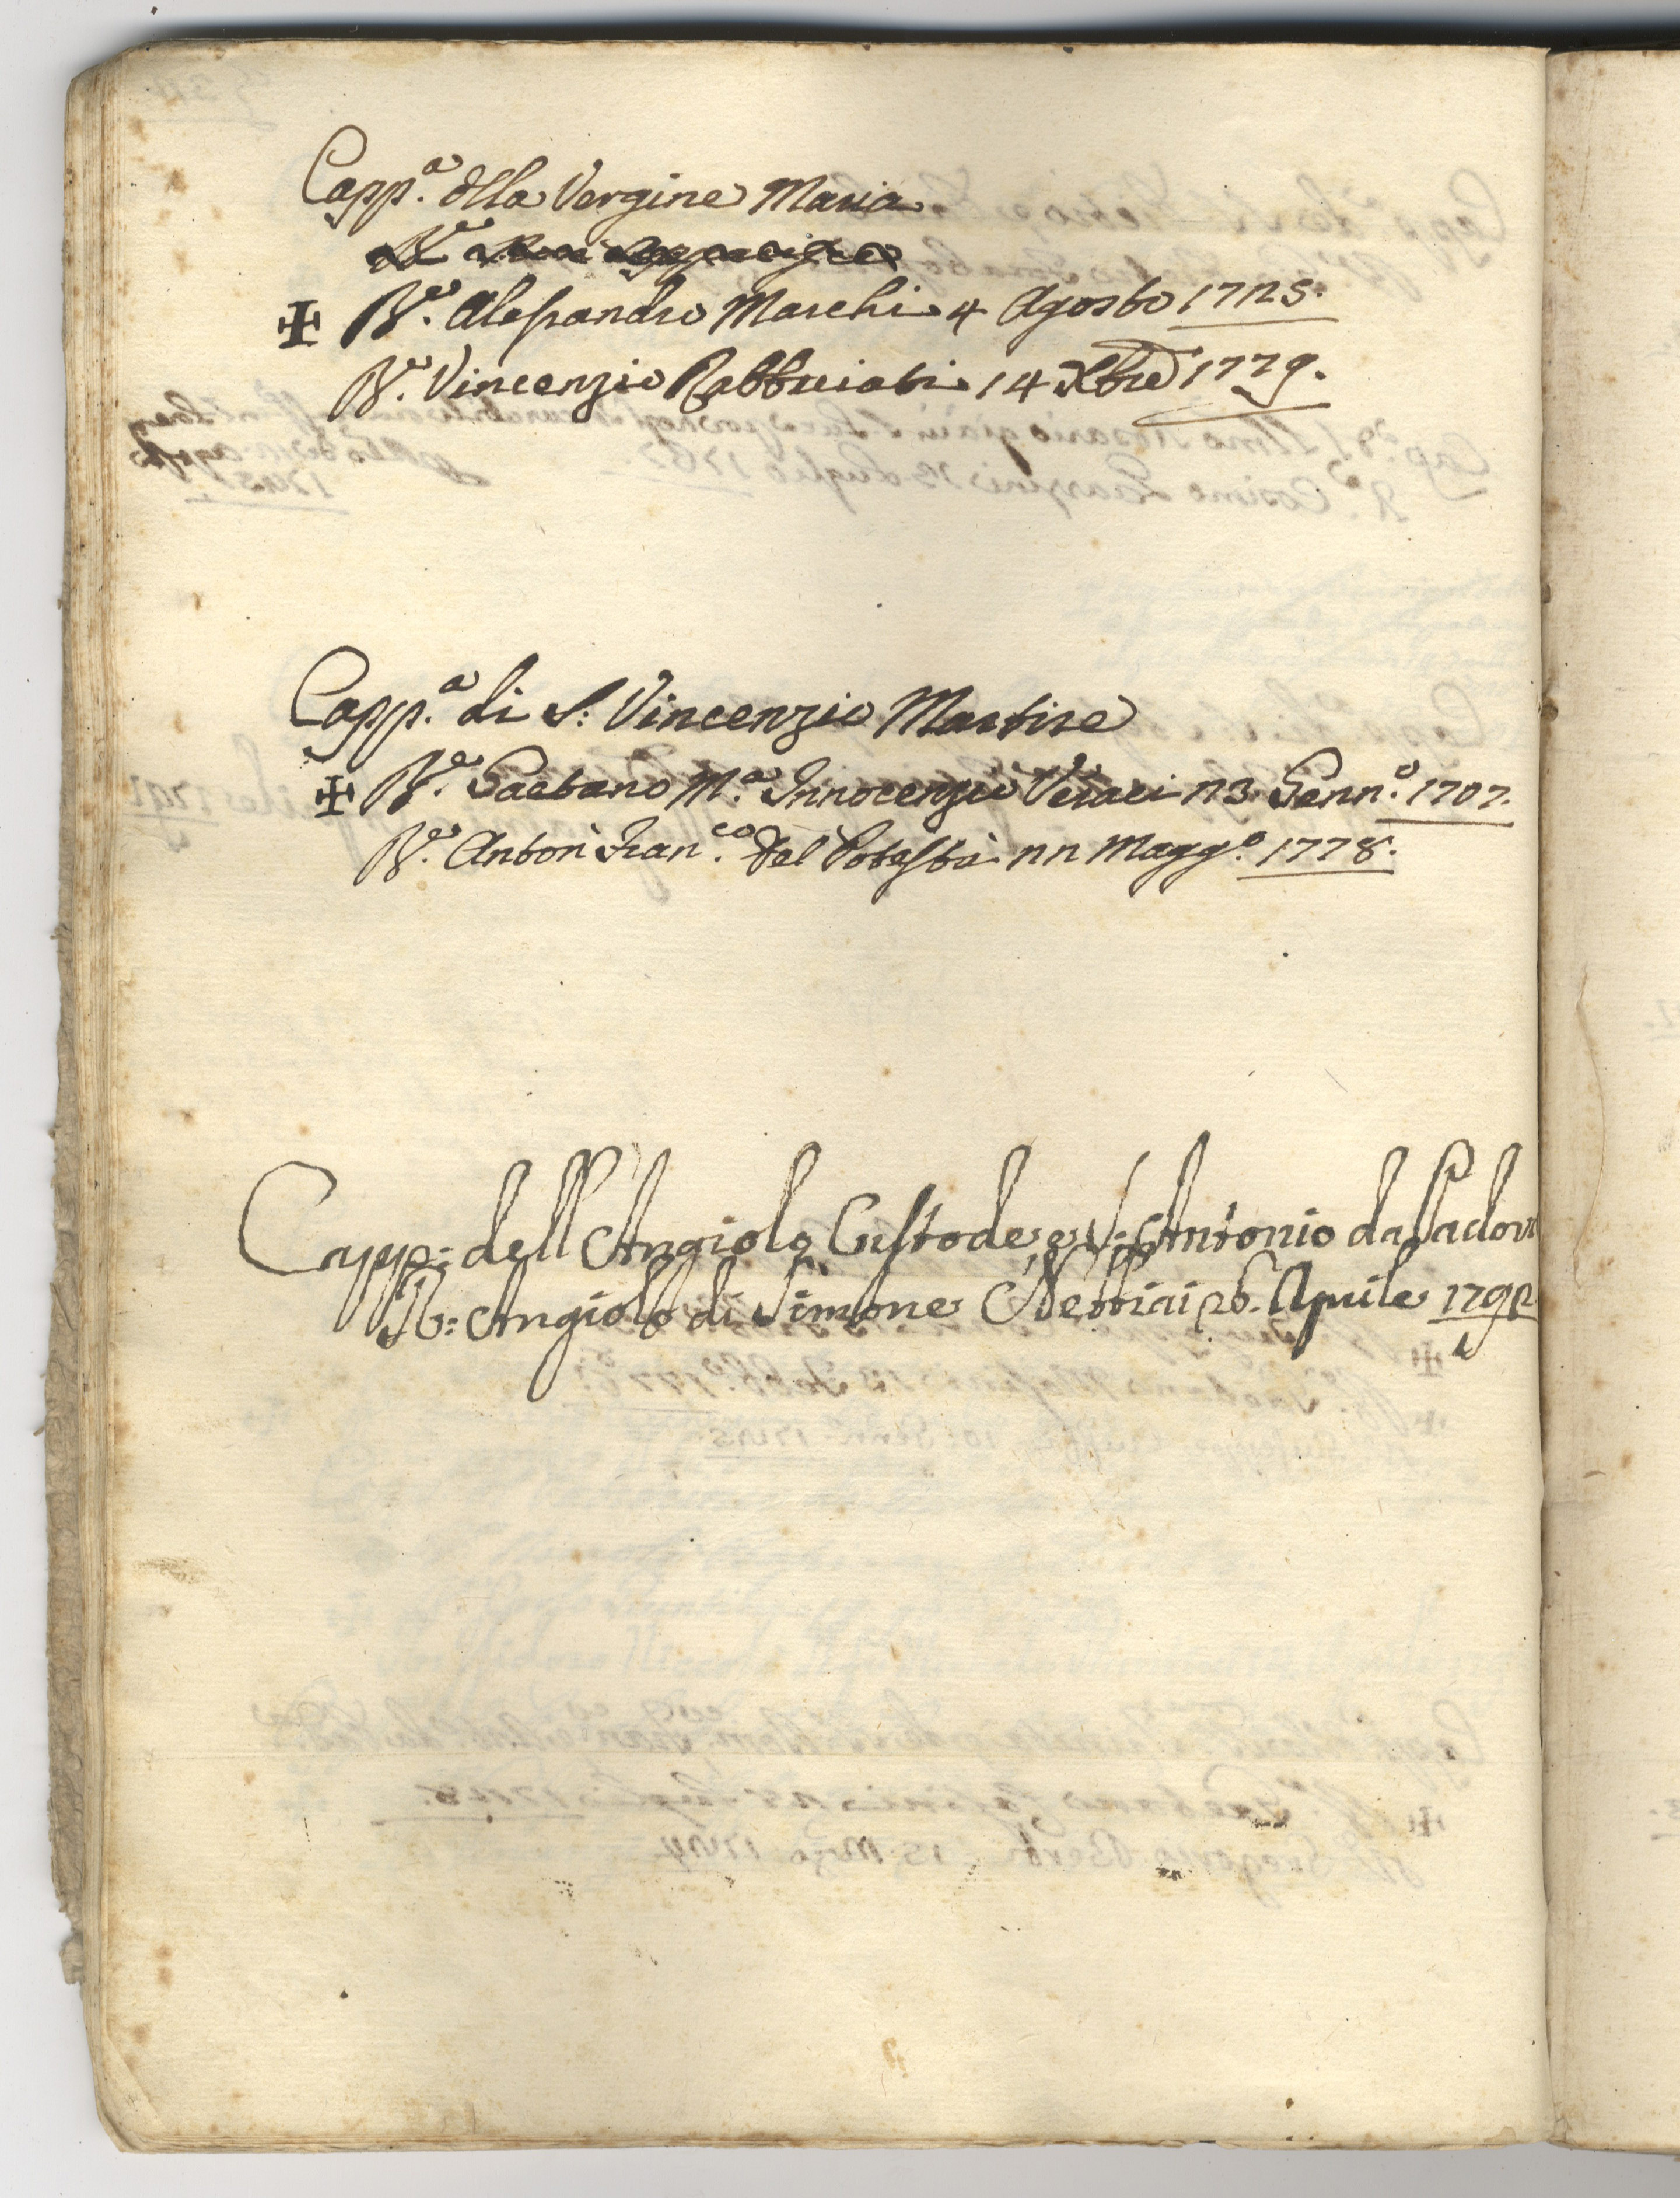 Capp.ª dlla Vergine Maria
✠ R.e Alessandro Marchi 4 Agosto 1725.
R.e Vincenzio Rabbuiati 14 Xbre 1779.
Capp.ª di S: Vincenzio Martire
✠ R.e Gaetano M.ª Innocenzio Veraci 23 Genn.º 1707.
R.e Anton Fran.co Del Potestà 22 Magg.º 1778.
Capp: dell Angiolo Custode, e S: Antonio da Padova
R: Angiolo di Simone Nebbiai 26. Aprile 1792